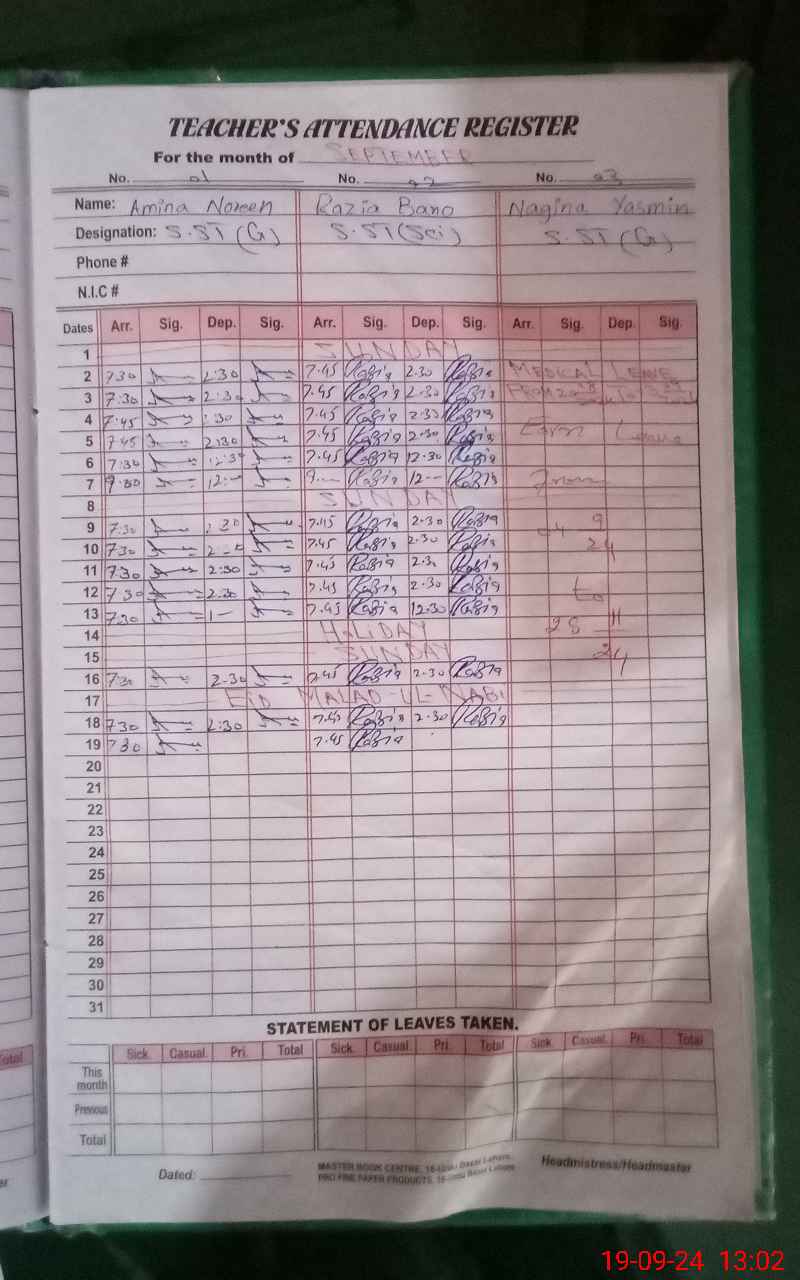 TEACHER'S ATTENDANCE REGISTER
For the month of SEPTEMBER
No. 01 No. 02 No. 03
Name: Amina Noreen Razia Bano Nagina Yasmin
Designation: S.ST (G) S.ST (Sci) S.ST (G)
Phone #
N.I.C #
Dates Arr. Sig. Dep. Sig. Arr. Sig. Dep. Sig. Arr. Sig. Dep. Sig.
1 SUNDAY
2 7:30 2:30 7.45 Razia 2.30 Razia MEDICAL LEAVE
3 7:30 2:30 7.45 Razia 2.30 Razia FROM
4 7:45 :30 7.45 Razia 2.30 Razia
5 7:45 2:30 7.45 Razia 2.30 Razia Earn Leave
6 7:30 12:30 7.45 Razia 12.30 Razia
7 9:00 12:- 9-- Razia 12-- Razia From
8 SUNDAY
9 7:30 :30 7.45 Razia 2-30 Razia 04 9
10 7:30 7.45 Razia 2.30 Razia 24
11 7:30 2:30 7.45 Razia 2.30 Razia
12 7:30 2:30 7.45 Razia 2.30 Razia to
13 7:30 1- 7.45 Razia 12.30 Razia
14 HOLIDAY 28 11
15 SUNDAY 24
16 730 2-30 7.45 Razia 2-30 Razia
17 EID MALAD-UL-NABI
18 730 2:30 7.45 Razia 2.30 Razia
19 730 7.45 Razia
20
21
22
23
24
25
26
27
28
29
30
31
STATEMENT OF LEAVES TAKEN.
Sick. Casual. Pri. Total Sick. Casual. Pri. Total Sick. Casual. Pri. Total
This month
Previous
Total
Dated:
MASTER BOOK CENTRE, Bazar Lahore.
PRO.FINE PAPER PRODUCTS, Bazar Lahore
Headmistress/Headmaster
19-09-24 13:02